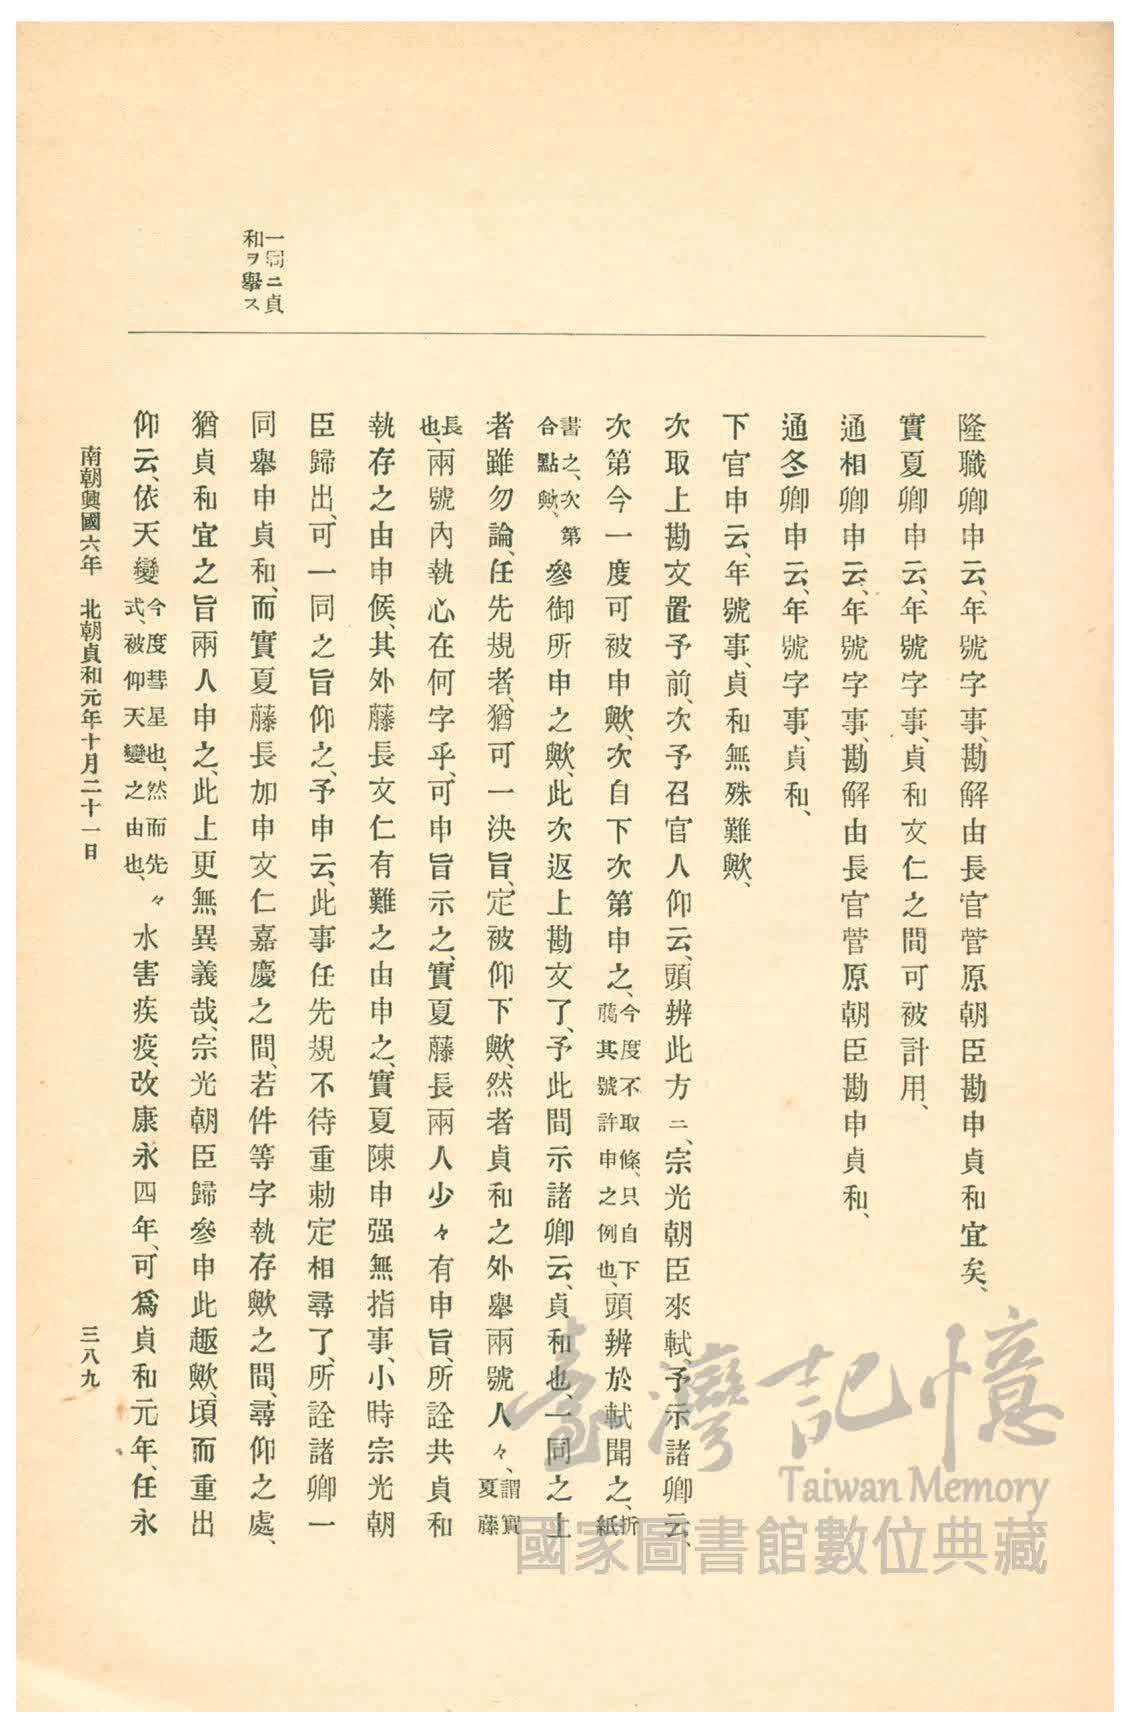 一同ニ貞
和ヲ擧ス
隆職卿申云、年號字事、勘解由長官菅原朝臣勘申貞和宜矣、
實夏卿申云、年號字事、貞和文仁之間可被計用、
通相卿申云、年號字事、勘解由長官菅原朝臣勘申貞和、
通冬卿申云、年號字事、貞和、
下官申云、年號事、貞和無殊難歟、
次取上勘文置予前、次予召官人仰云、頭辨此方ニ、宗光朝臣來軾、予示諸卿云、
次第今一度可被申歟、次自下次第申之、今度不取條、只自下﨟其號許申之例也、頭辨於軾聞之、折紙
書之、次第合點歟、參御所申之歟、此次返上勘文了、予此間示諸卿云、貞和也、一同之上
者雖勿論、任先規者、猶可一決旨、定被仰下歟、然者貞和之外擧兩號人々、謂實夏藤
長也、兩號內執心在何字乎、可申旨示之、實夏藤長兩人少々有申旨、所詮共貞和
執存之由申候、其外藤長文仁有難之由申之、實夏陳申强無指事、小時宗光朝
臣歸出、可一同之旨仰之、予申云、此事任先規不待重勅定相尋了、所詮諸卿一
同擧申貞和、而實夏藤長加申文仁嘉慶之間、若件等字執存歟之間、尋仰之處、
猶貞和宜之旨兩人申之、此上更無異義哉、宗光朝臣歸參申此趣歟、頃而重出
仰云、依天變今度彗星也、然而先々式、被仰天變之由也、水害疾疫、改康永四年、可爲貞和元年、任永
南朝興國六年　北朝貞和元年十月二十一日
三八九
臺灣記憶
Taiwan Memory
國家圖書館數位典藏